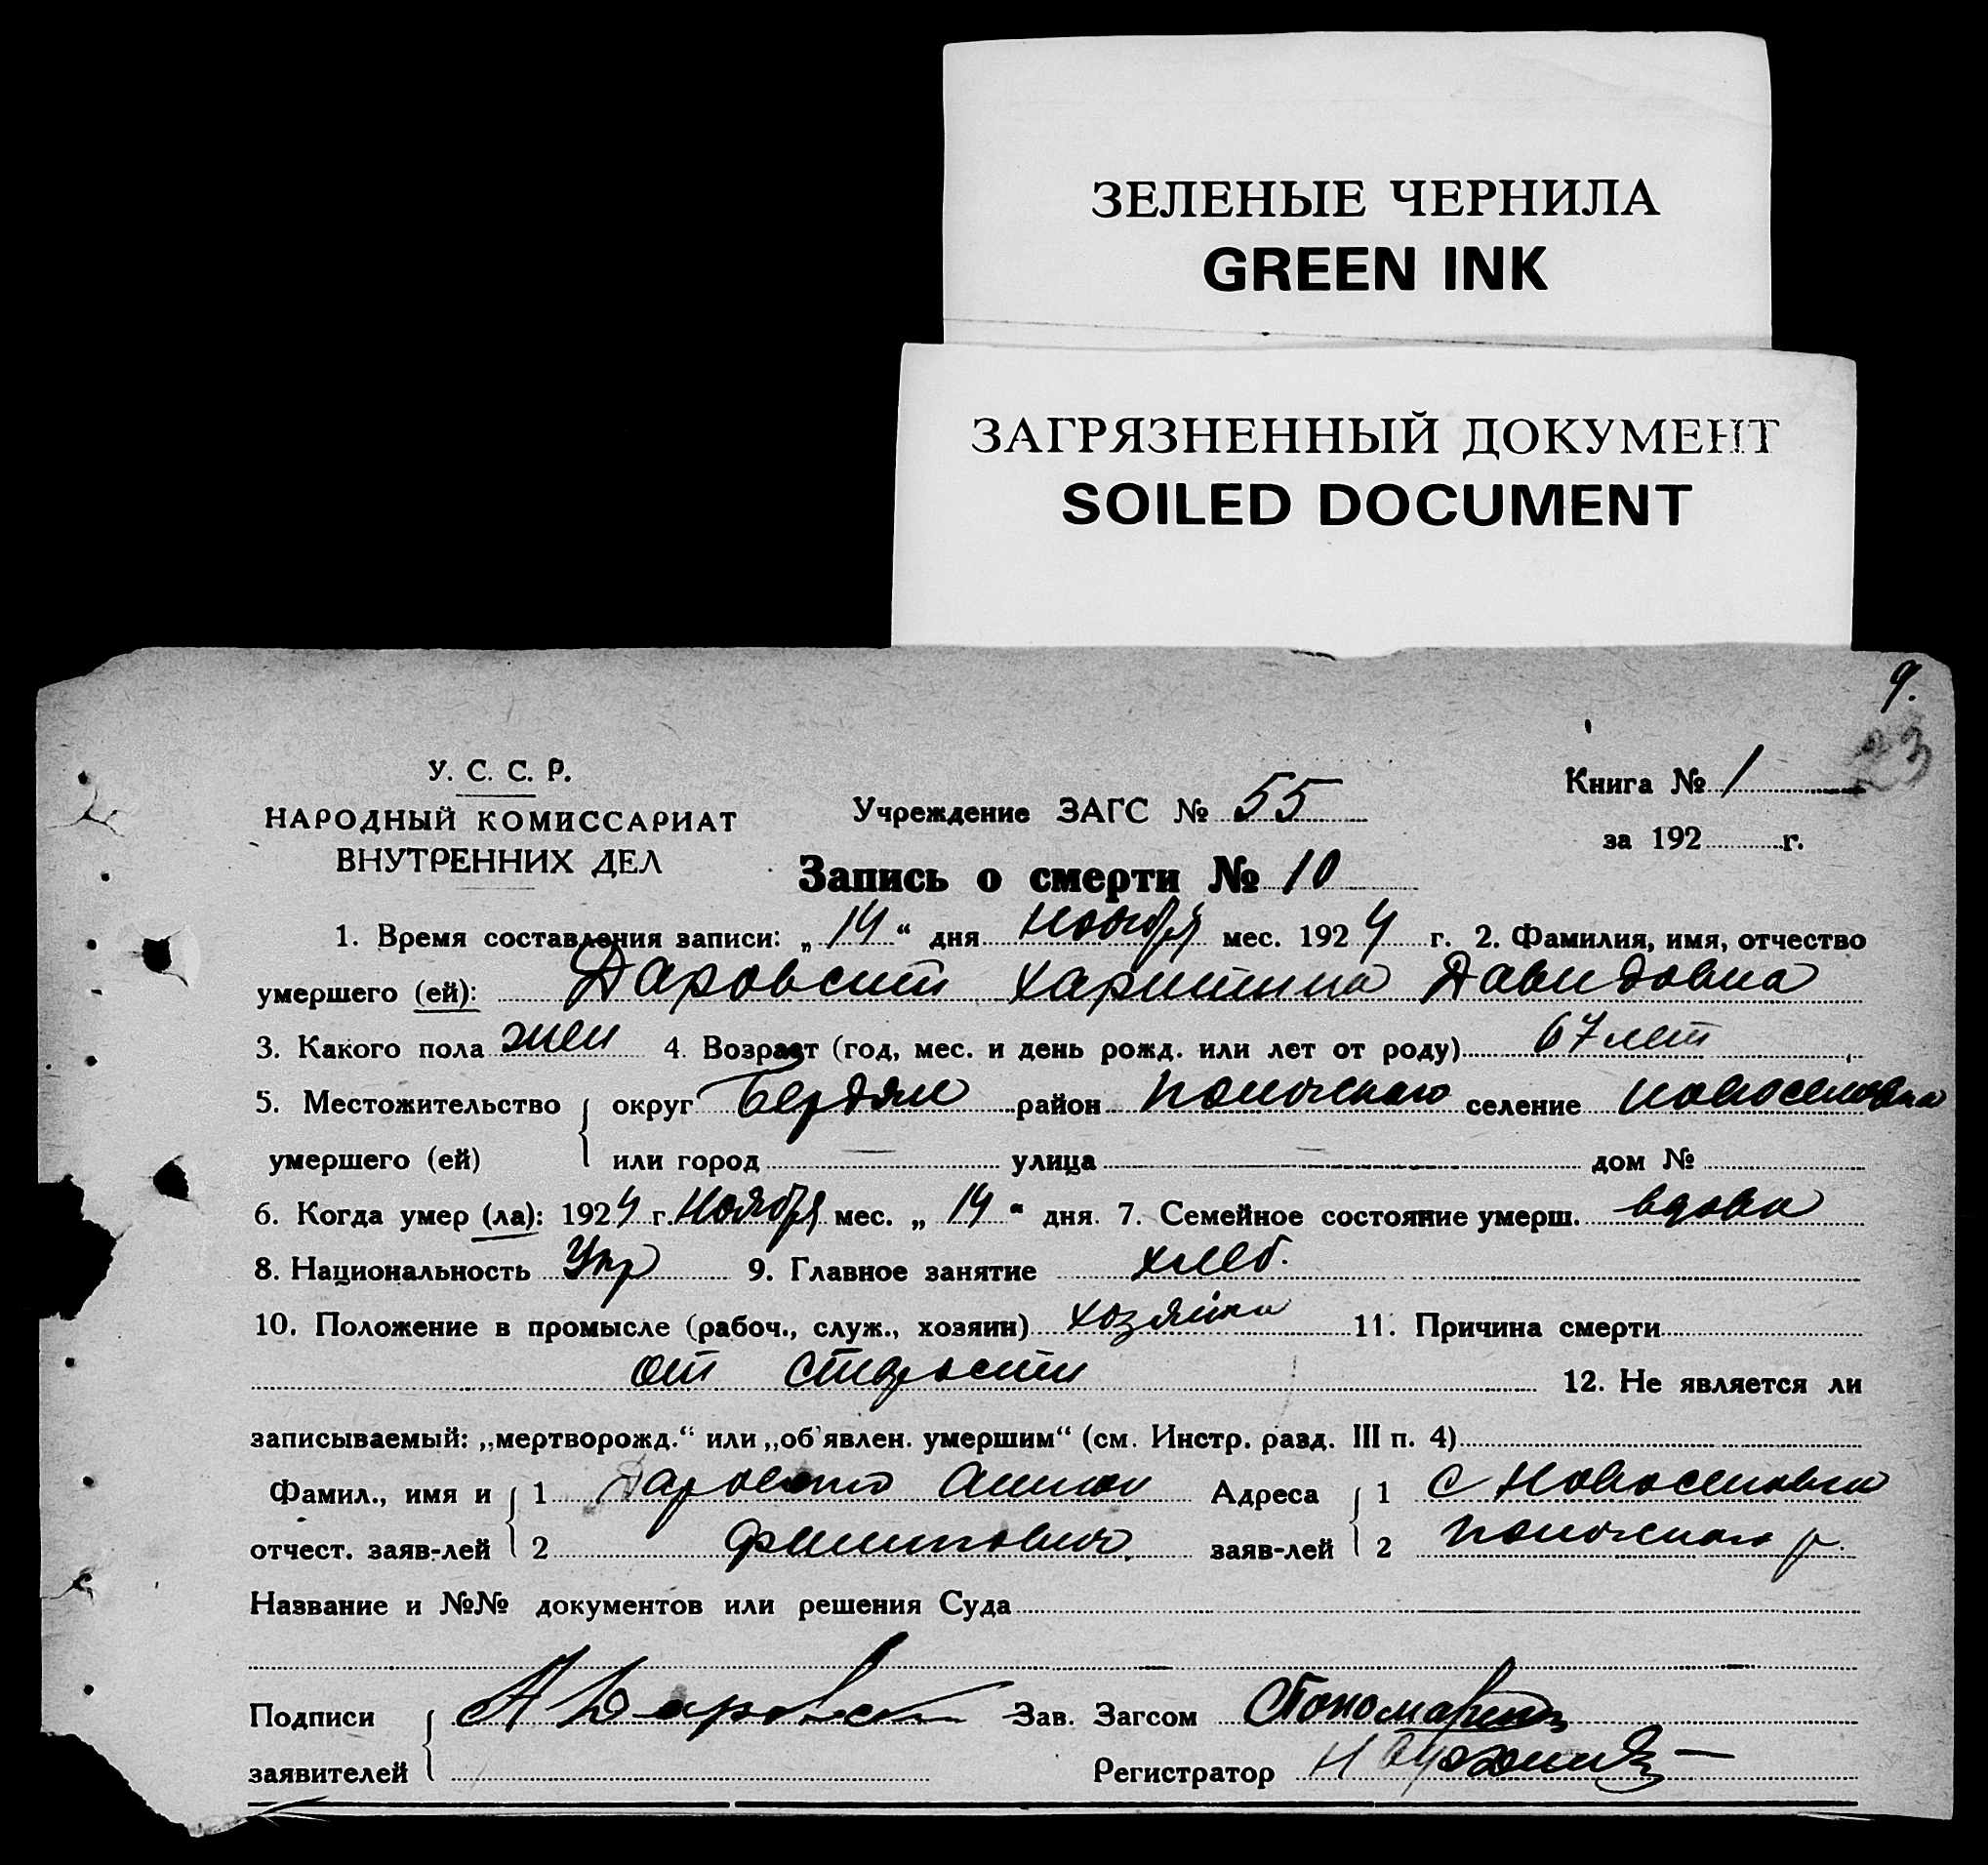 ЗЕЛЕНЫЕ ЧЕРНИЛА
GREEN INK
ЗАГРЯЗНЕННЫЙ ДОКУМЕНТ
SOILED DOCUMENT
9.
23
У. С. С. Р.
НАРОДНЫЙ КОМИССАРИАТ
ВНУТРЕННИХ ДЕЛ
Учреждение ЗАГС № 55
Книга № 1
за 192 г.
Запись о смерти № 10
1. Время составления записи: „14“ дня ноября мес. 1924 г. 2. Фамилия, имя, отчество
умершего (ей): Даровскит Харитина Давидовна
3. Какого пола жен 4. Возраст (год, мес. и день рожд. или лет от роду) 67 лет
5. Местожительство округ Бердян район селение Новоспасовка
умершего (ей) или город — улица — дом №
6. Когда умер (ла): 1924 г. Ноября мес. „14“ дня. 7. Семейное состояние умерш. вдова
8. Национальность Укр 9. Главное занятие хлеб.
10. Положение в промысле (рабоч., служ., хозяин) хозяйка 11. Причина смерти
от старости 12. Не является ли
записываемый: „мертворожд.“ или „об'явлен. умершим“ (см. Инстр. разд. III п. 4)
Фамил., имя и 1 Адреса 1 с
отчест. заяв-лей 2 Филиппович заяв-лей 2 р.
Название и №№ документов или решения Суда
Подписи А Даровск Зав. Загсом Пономаренко
заявителей Регистратор Н